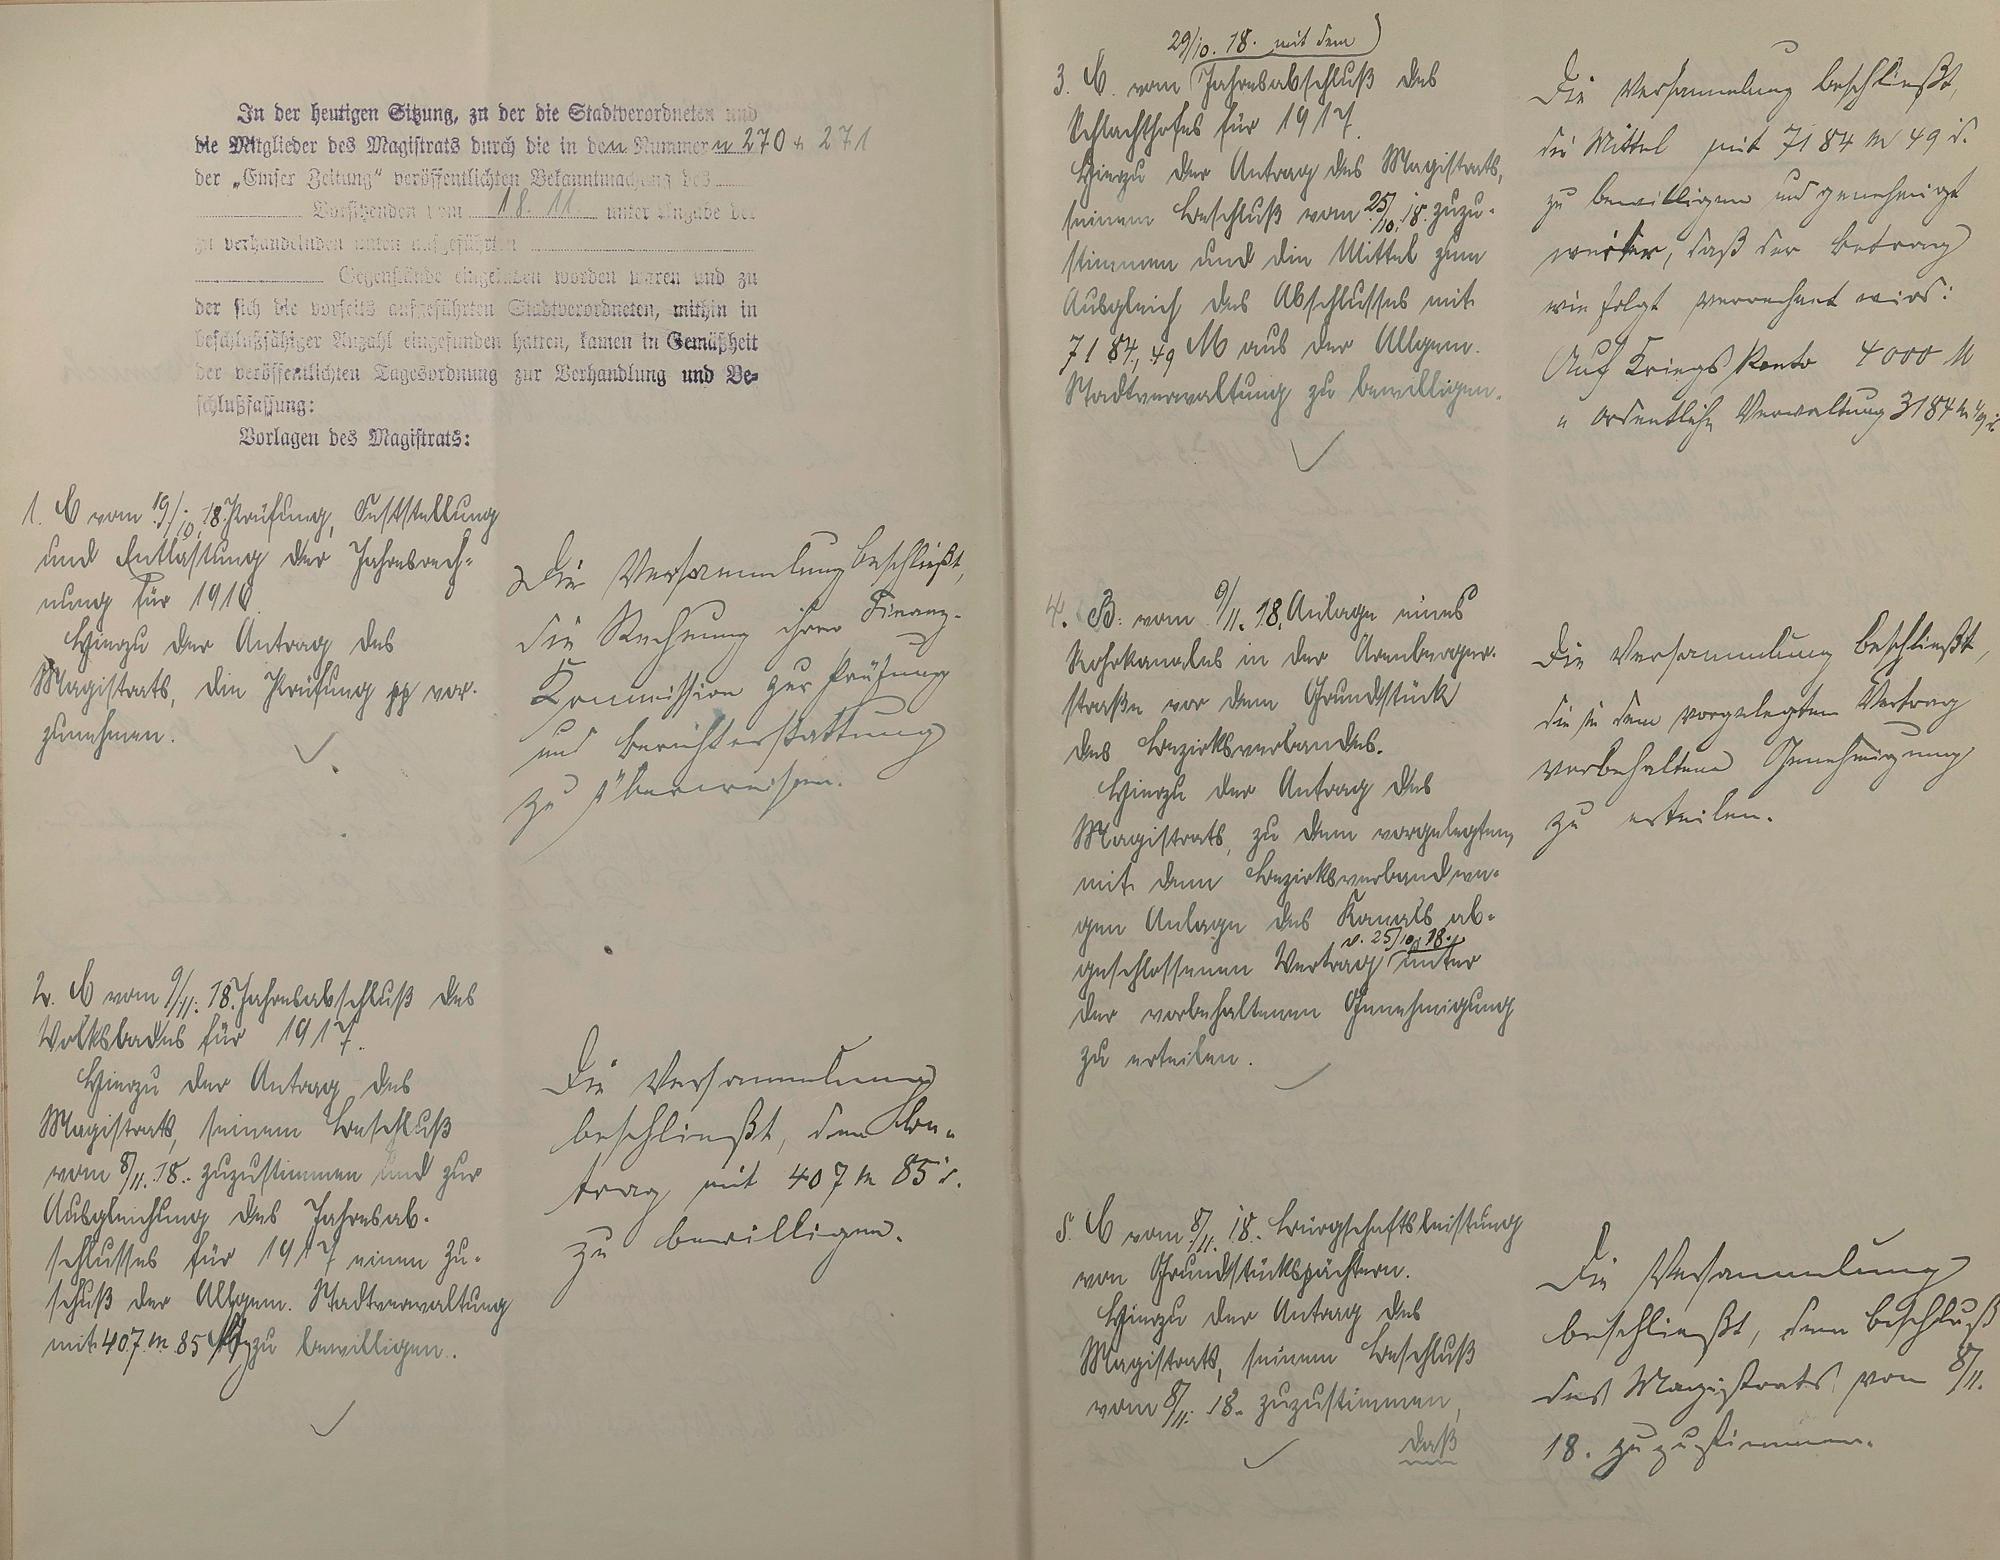 In der heutigen Sitzung, zu der die Stadtverordneten und
die Mitglieder des Magistrats durch die in den Nummern 270 + 271
der „Emser Zeitung“ veröffentlichten Bekanntmachung des
Vorsitzenden vom 18. 11. unter Angabe der
zu verhandelnden unten aufgeführten
Gegenstände eingeladen worden waren und zu
der sich die vorseits aufgeführten Stadtverordneten, mithin in
beschlußfähiger Anzahl eingefunden hatten, kamen in Gemäßheit
der veröffentlichten Tagesordnung zur Verhandlung und Be-
schlußfassung:
Vorlagen des Magistrats:
1. C vom 19/10. 18. Prüfung, Feststellung
und Entlastung der Jahresrech-
nung für 1916.
Hierzu der Antrag des
Magistrats, die Prüfung pp vor-
zunehmen.
Die Versammlung beschließt,
die Rechnung ihrer Finanz-
Kommission zur Prüfung
und Berichterstattung
zu überweisen.
2. C vom 9/11. 18. Jahresabschluß des
Volksbades für 1917.
Hierzu der Antrag des
Magistrats, seinem Beschluß
vom 8/11. 18. zuzustimmen und zur
Ausgleichung des Jahresab-
schlusses für 1917 einen Zu-
schuß der Allgem. Stadtverwaltung
mit 407 M 85 zu bewilligen.
Die Versammlung
beschließt, den Be-
trag mit 407 M 85 d.
zu bewilligen.
29/10. 18. mit dem
3. C. vom Jahresabschluß des
Schlachthofes für 1917.
Hierzu der Antrag des Magistrats,
seinem Beschluß vom 25/10. 18. zuzu-
stimmen und die Mittel zum
Ausgleich des Abschlusses mit
7184,49 M aus der Allgem.
Stadtverwaltung zu bewilligen.
Die Versammlung beschließt,
die Mittel mit 7184 M 49 d.
zu bewilligen und genehmigt
weiter, daß der Betrag
wie folgt verrechnet wird:
Auf Kriegs Konto 4000 M
" ordentliche Verwaltung 3184 M 49 d.
4. B. vom 9/11. 18. Anlage eines
Rohrkanales in der Arenberger-
straße vor dem Grundstück
des Bezirksverbandes.
Hierzu der Antrag des
Magistrats, zu dem vorgelegten,
mit dem Bezirksverband we-
gen Anlage des Kanals ab-
v. 25/10. 18.
geschlossenen Vertrag unter
der vorbehaltenen Genehmigung
zu erteilen.
Die Versammlung beschließt,
die in dem vorgelegten Vertrag
vorbehaltene Genehmigung
zu erteilen.
5. C vom 8/11. 18. Bürgschaftsleistung
von Grundstückspächtern.
Hierzu der Antrag des
Magistrats, seinem Beschluß
vom 8/11. 18. zuzustimmen,
daß
Die Versammlung
beschließt, dem Beschluß
des Magistrats vom 8/11.
18. zuzustimmen.